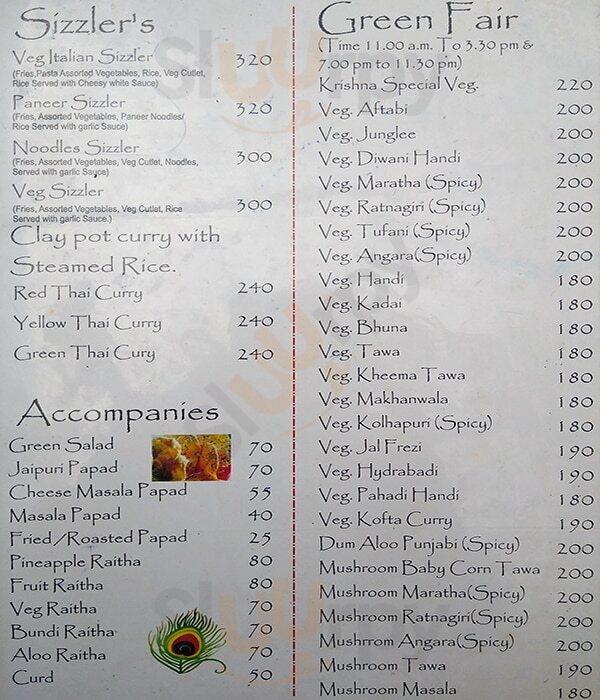 Sizzler's
Veg Italian Sizzler 320
(Fries,Pasta Assorted Vegetables, Rice, Veg Cutlet,
Rice Served with Cheesy white Sauce)
Paneer Sizzler 320
(Fries, Assorted Vegetables, Paneer Noodles/
Rice Served with garlic Sauce)
Noodles Sizzler 300
(Fries, Assorted Vegetables, Veg Cutlet, Noodles,
Served with garlic Sauce)
Veg Sizzler 300
(Fries, Assorted Vegetables, Veg Cutlet, Rice
Served with garlic Sauce.)
Clay pot curry with
Steamed Rice.
Red Thai Curry 240
Yellow Thai Curry 240
Green Thai Cury 240
Accompanies
Green Salad 70
Jaipuri Papad 70
Cheese Masala Papad 55
Masala Papad 40
Fried /Roasted Papad 25
Pineapple Raitha 80
Fruit Raitha 80
Veg Raitha 70
Bundi Raitha 70
Aloo Raitha 70
Curd 50
Green Fair
(Time 11.00 a.m. To 3.30 pm &
7.00 pm to 11.30 pm)
Krishna Special Veg. 220
Veg. Aftabi 200
Veg. Junglee 200
Veg. Diwani Handi 200
Veg. Maratha (Spicy) 200
Veg. Ratnagiri (Spicy) 200
Veg. Tufani (Spicy) 200
Veg. Angara(Spicy) 200
Veg. Handi 180
Veg. Kadai 180
Veg. Bhuna 180
Veg. Tawa 180
Veg. Kheema Tawa 180
Veg. Makhanwala 180
Veg. Kolhapuri (Spicy) 180
Veg. Jal Frezi 190
Veg. Hydrabadi 190
Veg. Pahadi Handi 180
Veg. Kofta Curry 190
Dum Aloo Punjabi (Spicy) 200
Mushroom Baby Corn Tawa 200
Mushroom Maratha(Spicy) 200
Mushroom Ratnagiri(Spicy) 200
Mushrrom Angara(Spicy) 200
Mushroom Tawa 190
Mushroom Masala 180
Sluurpy
Sluurpy
Sluurpy